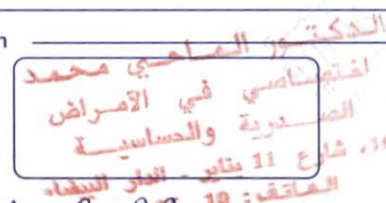 الدكتور الماحي محمد
اختصاصي في الأمراض
الصدرية والحساسية
شارع 11 يناير - الدار البيضاء
الهاتف : 10